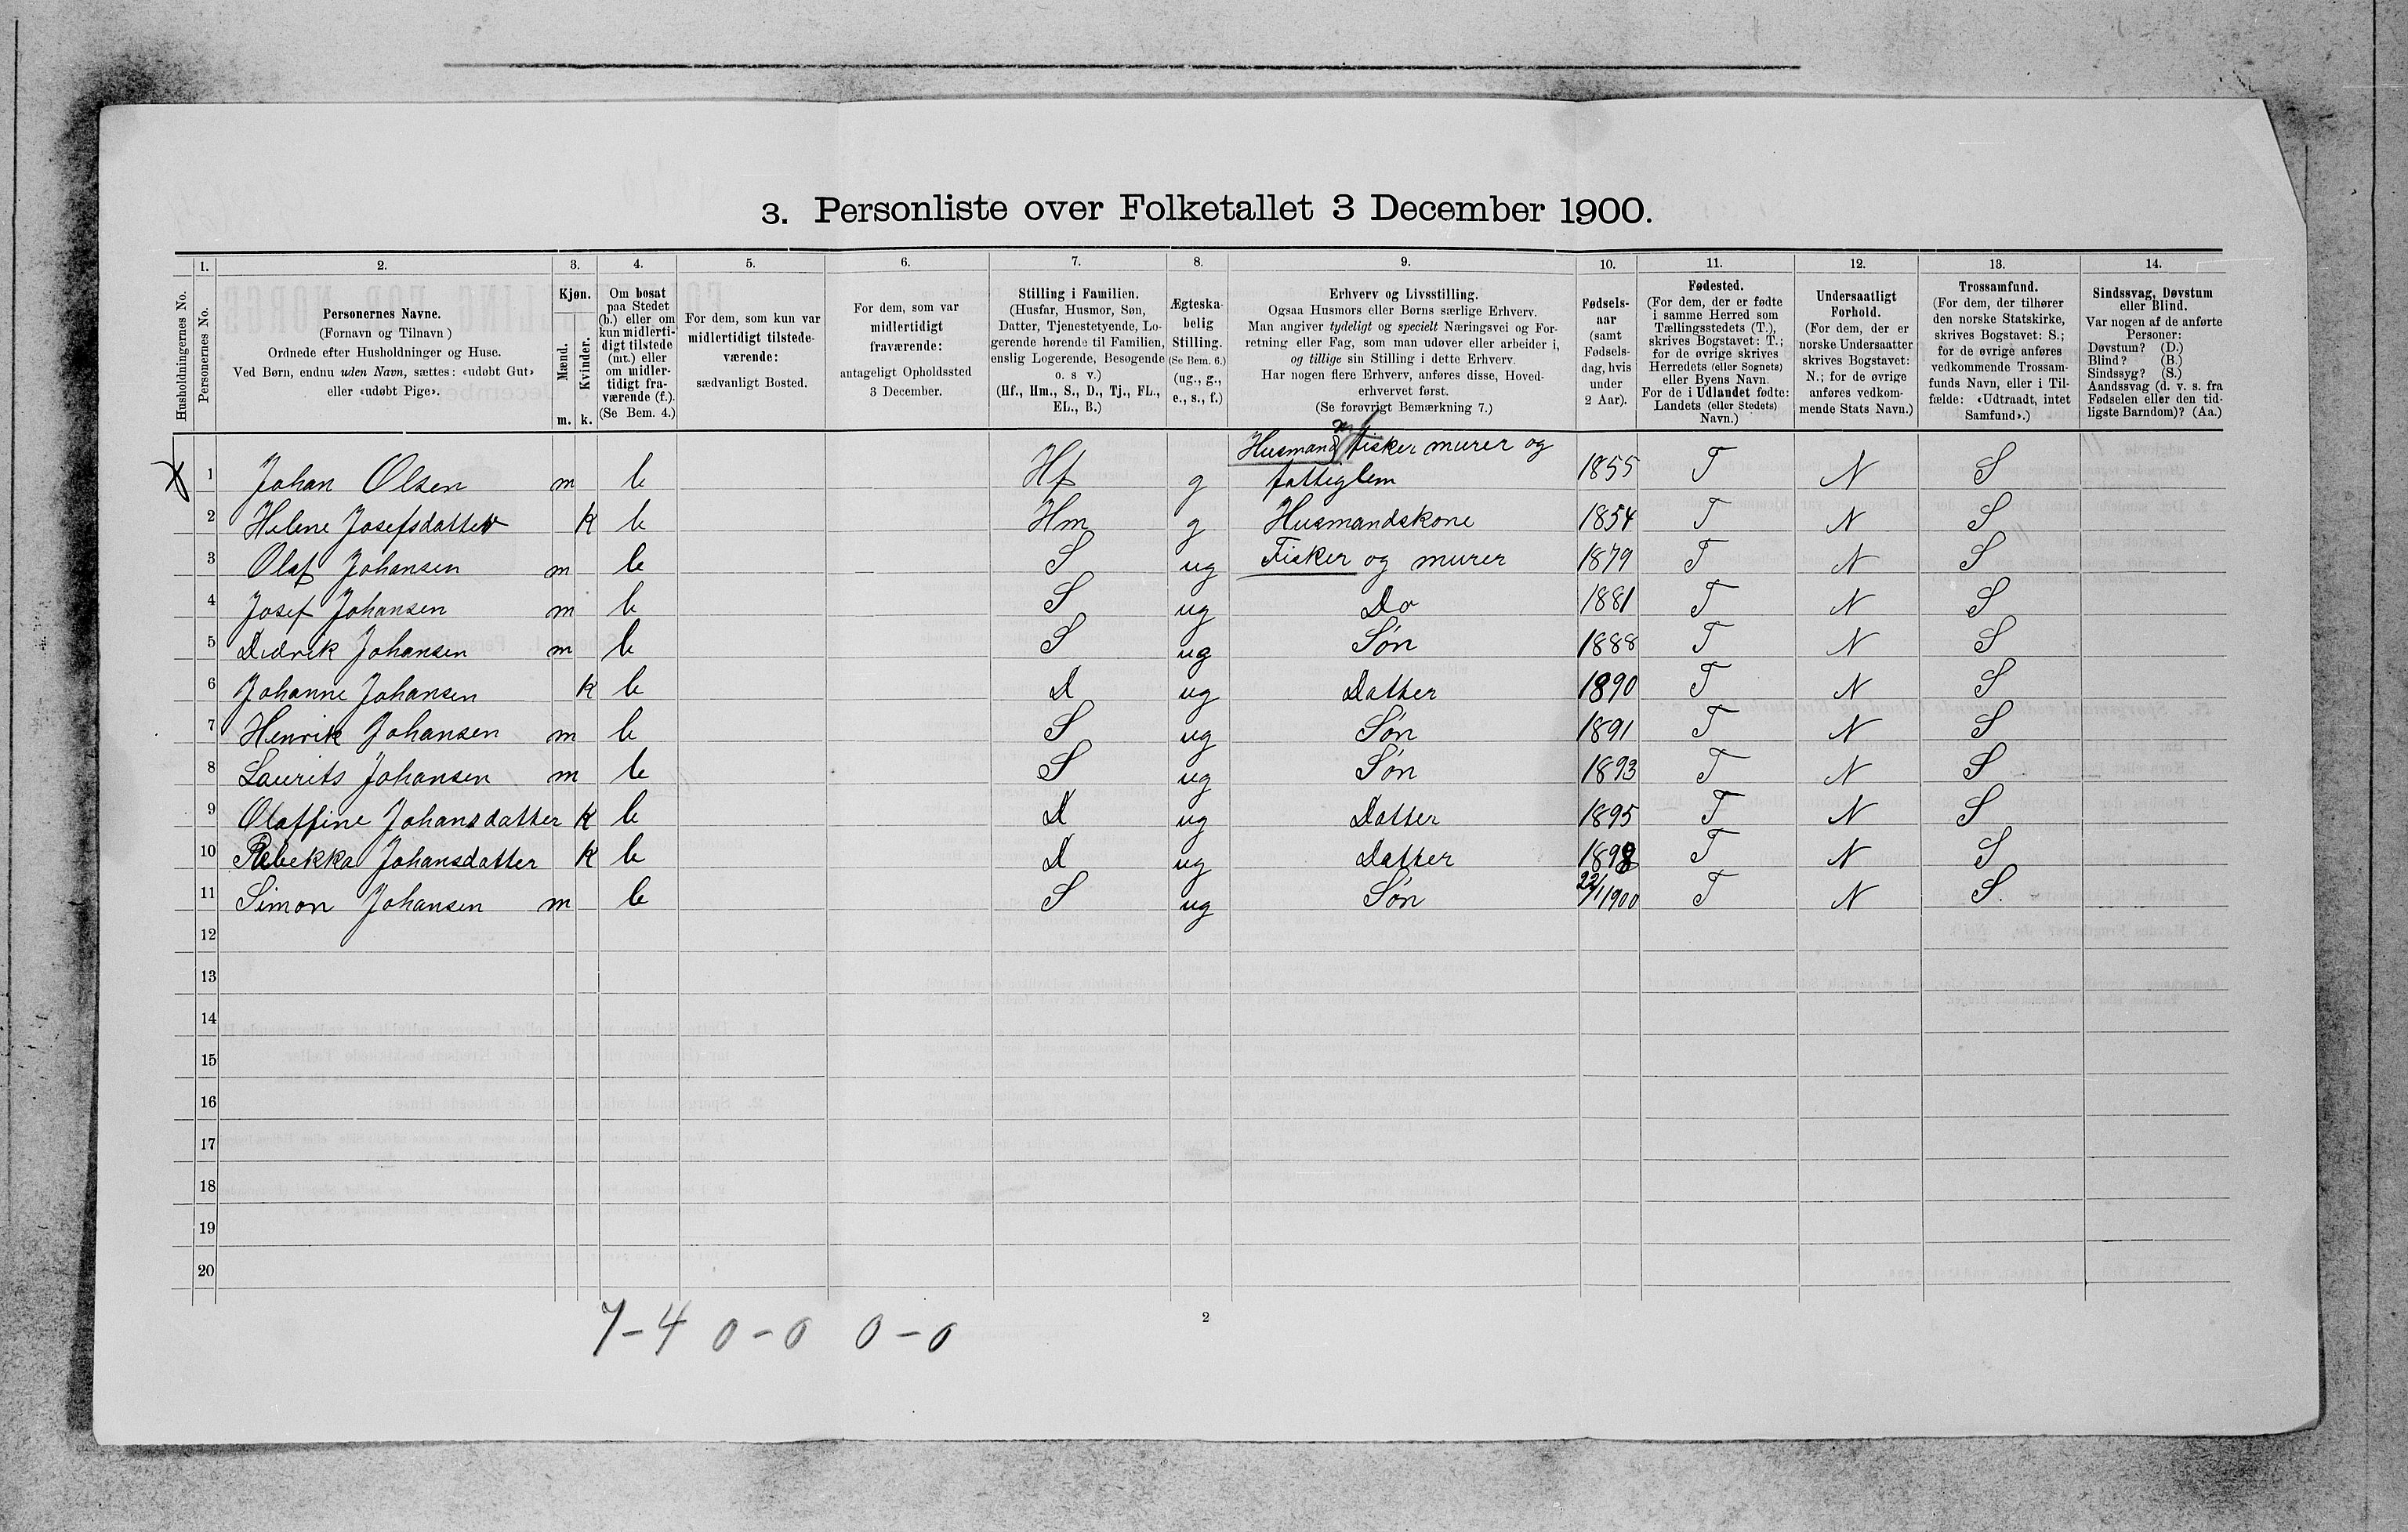 3. Personliste over Folketallet 3 December 1900.
1. 2. 3. 4. 5. 6. 7. 8. 9. 10. 11. 12. 13. 14.
Husholdningernes No.
Personernes No.
Personernes Navne.
(Fornavn og Tilnavn)
Ordnede efter Husholdninger og Huse.
Ved Børn, endnu uden Navn, sættes: «udøbt Gut»
eller «udøbt Pige».
Kjøn.
Mænd.
Kvinder.
m. k.
Om bosat
paa Stedet
(b.) eller om
kun midlerti-
digt tilstede
(mt.) eller
om midler-
tidigt fra-
værende (f.).
(Se Bem. 4.)
For dem, som kun var
midlertidigt tilstede-
værende:
sædvanligt Bosted.
For dem, som var
midlertidigt
fraværende:
antageligt Opholdssted
3 December.
Stilling i Familien.
(Husfar, Husmor, Søn,
Datter, Tjenestetyende, Lo-
gerende hørende til Familien,
enslig Logerende, Besøgende
o. s v.)
(Hf., Hm., S., D., Tj., FL.,
EL., B.)
Ægteska-
belig
Stilling.
(Se Bem. 6.)
(ug., g.,
e., s., f.)
Erhverv og Livsstilling.
Ogsaa Husmors eller Børns særlige Erhverv.
Man angiver tydeligt og specielt Næringsvei og For-
retning eller Fag, som man udøver eller arbeider i,
og tillige sin Stilling i dette Erhverv.
Har nogen flere Erhverv, anføres disse, Hoved-
erhvervet først.
(Se forøvrigt Bemærkning 7.)
Fødsels-
aar
(samt
Fødsels-
dag, hvis
under
2 Aar).
Fødested.
(For dem, der er fødte
i samme Herred som
Tællingsstedets (T.),
skrives Bogstavet: T.;
for de øvrige skrives
Herredets (eller Sognets)
eller Byens Navn.
For de i Udlandet fødte:
Landets (eller Stedets)
Navn.)
Undersaatligt
Forhold.
(For dem, der er
norske Undersaatter
skrives Bogstavet:
N.; for de øvrige
anføres vedkom-
mende Stats Navn.)
Trossamfund.
(For dem, der tilhører
den norske Statskirke,
skrives Bogstavet: S.;
for de øvrige anføres
vedkommende Trossam-
funds Navn, eller i Til-
fælde: «Udtraadt, intet
Samfund».)
Sindssvag, Døvstum
eller Blind.
Var nogen af de anførte
Personer:
Døvstum? (D.)
Blind? (B.)
Sindssyg? (S.)
Aandssvag (d. v. s. fra
Fødselen eller den tid-
ligste Barndom)? (Aa.)
Husmand fisker murer og
1 Johan Olsen m b Hf g fattiglem 1855 T N S
2 Helene Josefsdatter k b Hm g Husmandskone 1854 T N S
3 Olaf Johansen m b S ug Fisker og murer 1879 T N S
4 Josef Johansen m b S ug Do 1881 T N S
5 Didrik Johansen m b S ug Søn 1888 T N S
6 Johanne Johansen k b D ug Datter 1890 T N S
7 Henrik Johansen m b S ug Søn 1891 T N S
8 Laurits Johansen m b S ug Søn 1893 T N S
9 Olaffine Johansdatter k b D ug Datter 1895 T N S
10 Rebekka Johansdatter k b D ug Datter 1898 T N S
11 Simon Johansen m b S ug Søn 22/1 1900 T N S.
12
13
14
15
16
17
18
19
20
7-4 0-0 0-0
2